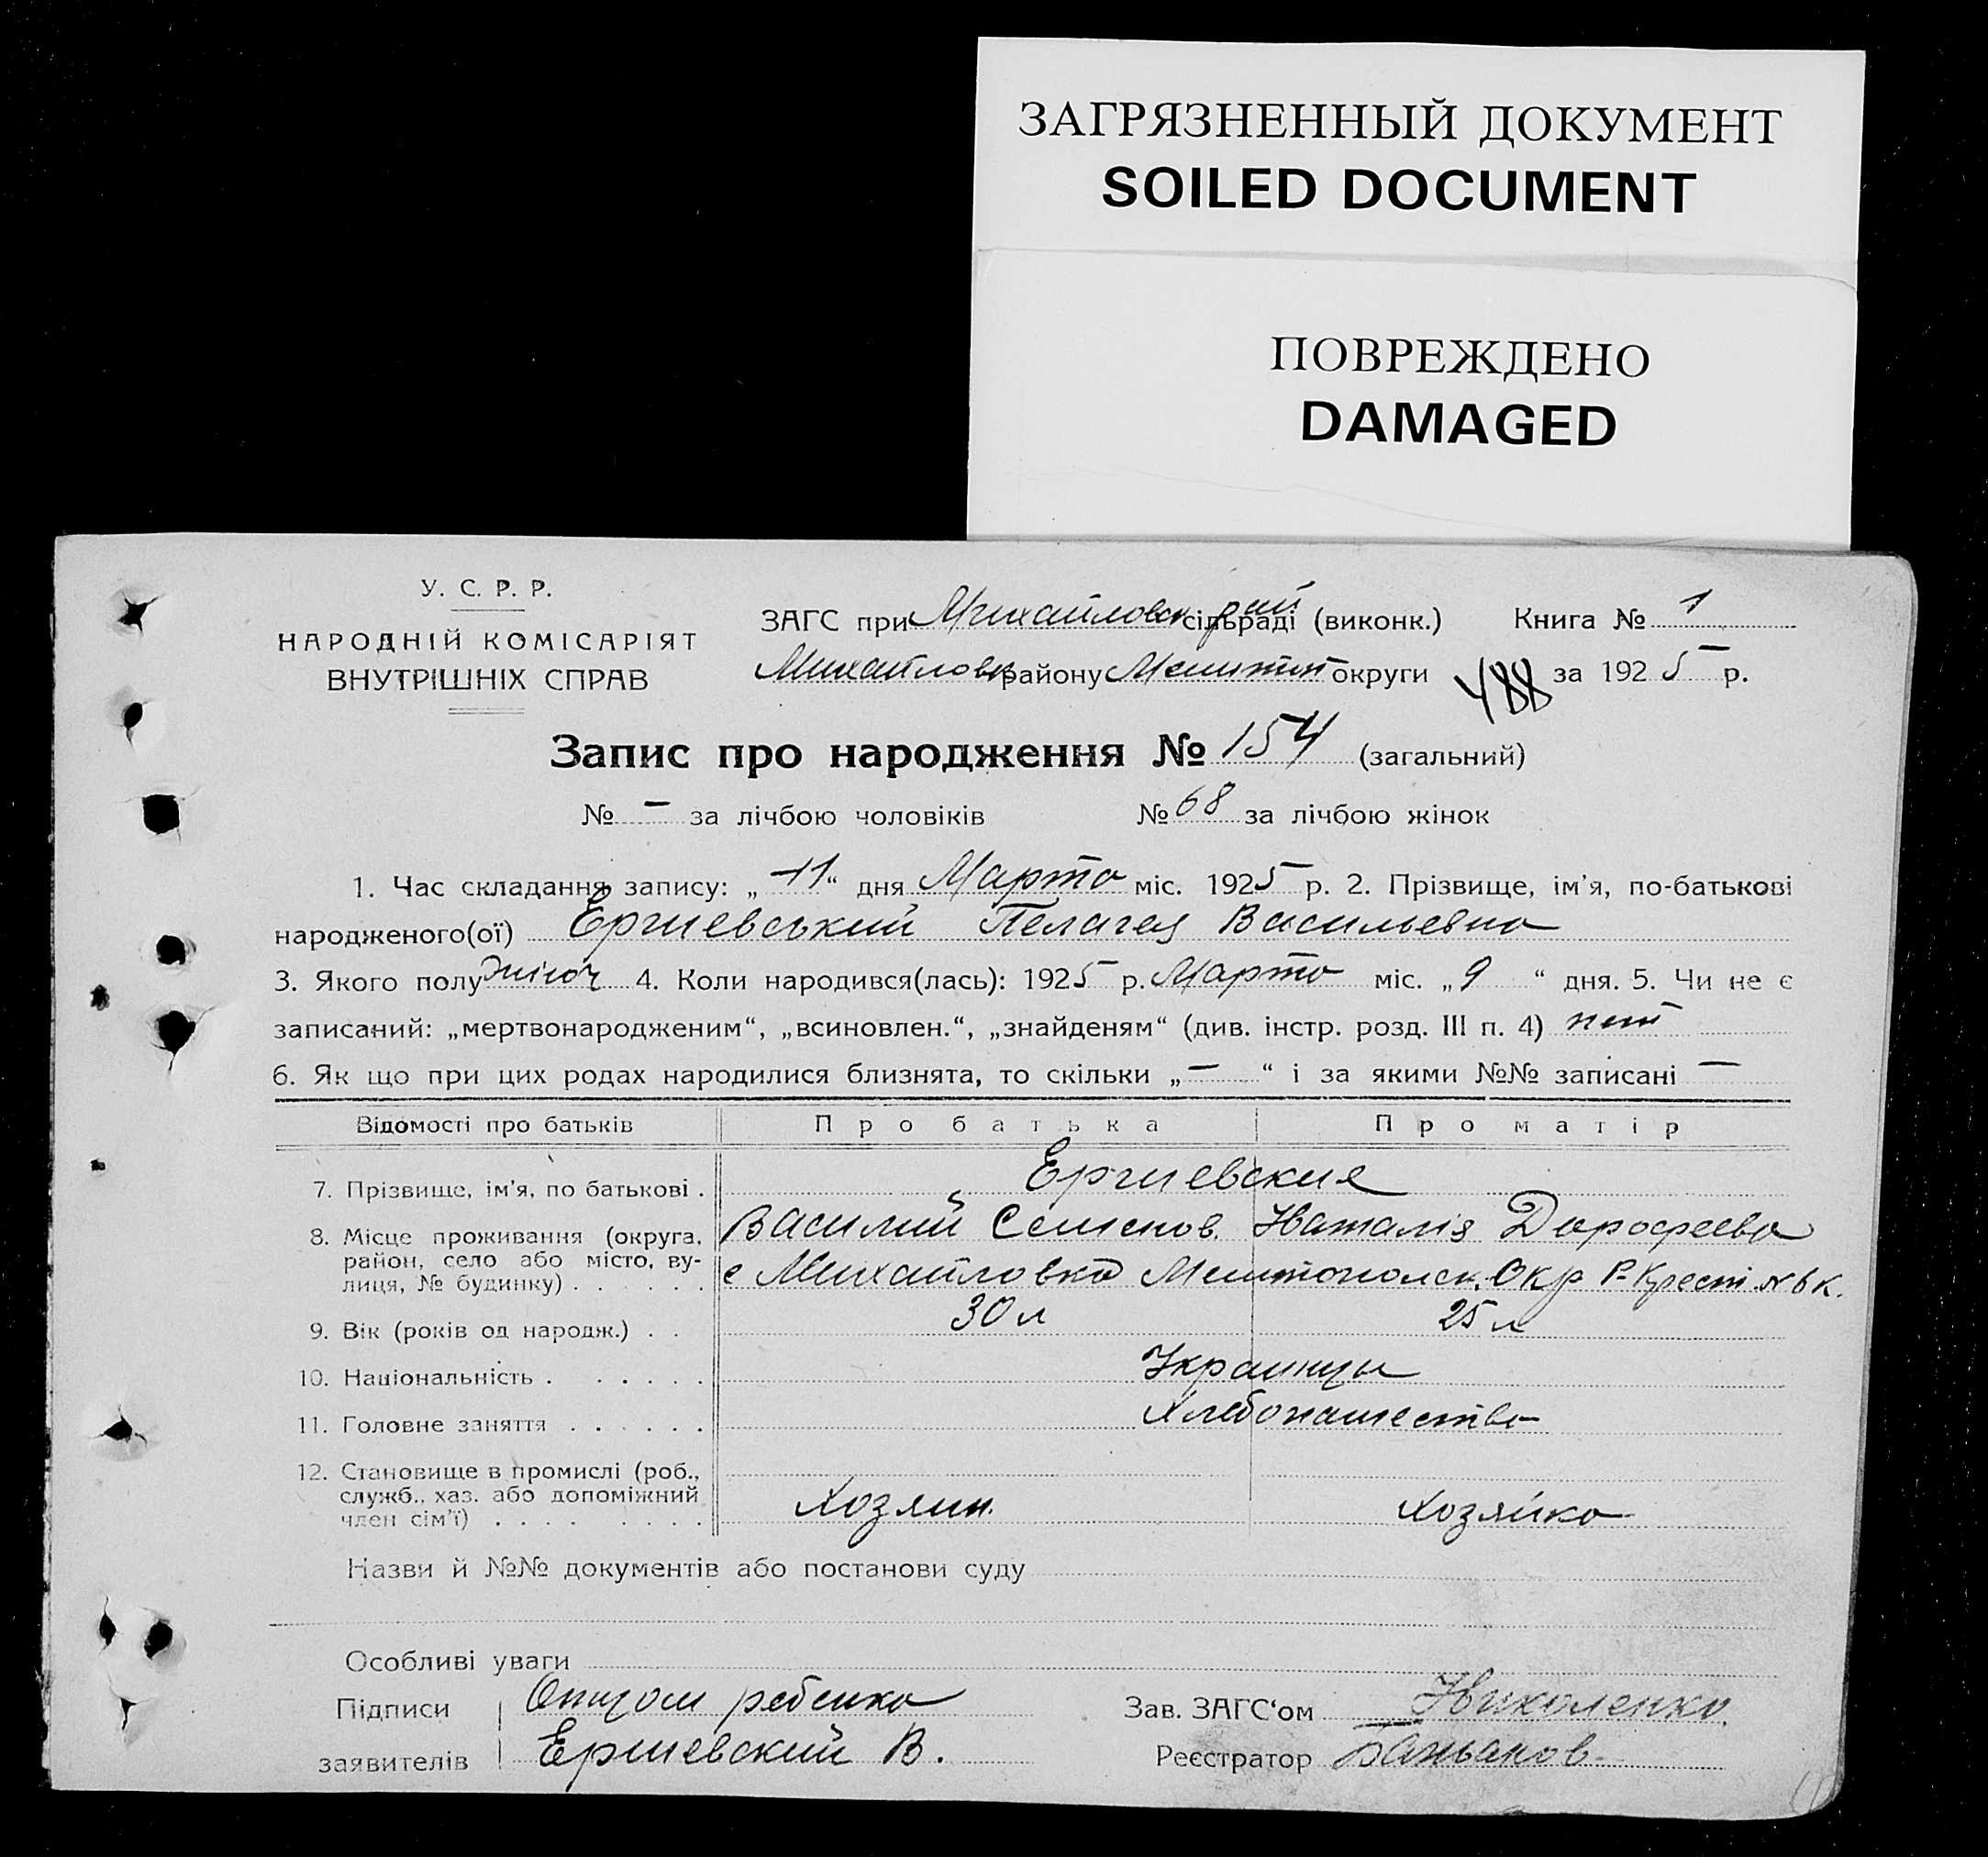 ЗАГРЯЗНЕННЫЙ ДОКУМЕНТ
SOILED DOCUMENT
ПОВРЕЖДЕНО
DAMAGED
У. С. Р. Р.
НАРОДНІЙ КОМІСАРІЯТ
ВНУТРІШНІХ СПРАВ
ЗАГС при Михайловск сільраді (виконк.) Книга № 1
Михайловск району Мелитоп округи 488 за 1925 р.
Запис про народження № 154 (загальний)
№ — за лічбою чоловіків № 68 за лічбою жінок
1. Час складання запису: „11“ дня Марта міс. 1925 р. 2. Прізвище, ім'я, по-батькові
народженого(ої) Ергиевський Пелагея Васильевна
3. Якого полу жіноч 4. Коли народився(лась): 1925 р. Марта міс. „9“ дня. 5. Чи не є
записаний: „мертвонародженим“, „всиновлен.“, „знайденям“ (див. інстр. розд. III п. 4) нет
6. Як що при цих родах народилися близнята, то скільки „—“ і за якими №№ записані —
Відомості про батьків Про батька Про матір
7. Прізвище, ім'я, по батькові . Ергиевские
8. Місце проживання (округа, Василий Семенов. Наталія Дорофеева
район, село або місто, ву-
лиця, № будинку) . . . . . . с Михайловка Мелитопольск. Окр Р-Крест. № 6 к.
9. Вік (років од народж.) . . 30 л 25 л
10. Національність . . . . . . Украинцы
11. Головне заняття . . . . . . Хлебопашество
12. Становище в промислі (роб.,
служб., хаз. або допоміжний Хозяин. Хозяйка
член сім'ї) . . . . . . . .
Назви й №№ документів або постанови суду
Особливі уваги
Підписи Отцом ребенка Зав. ЗАГС'ом Николенко
заявителів Ергиевский В. Реєстратор